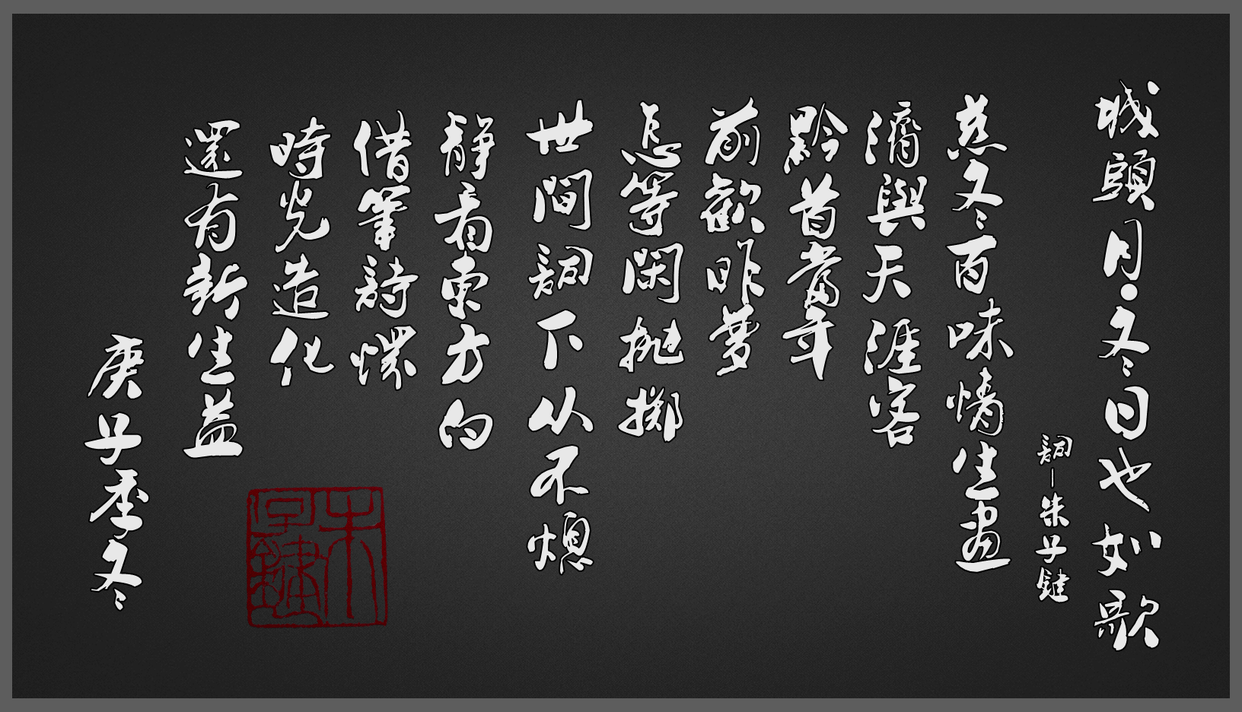 城頭月·冬日也如歌
詞—朱子鍵
羔冬百味情生畫
滴與天涯客
黔首當年
前歡昨夢
怎等閑抛擲
世間詞下从不熄
静看東方白
借筆詩
時光造化
還有新生益
庚子季冬
朱子鍵